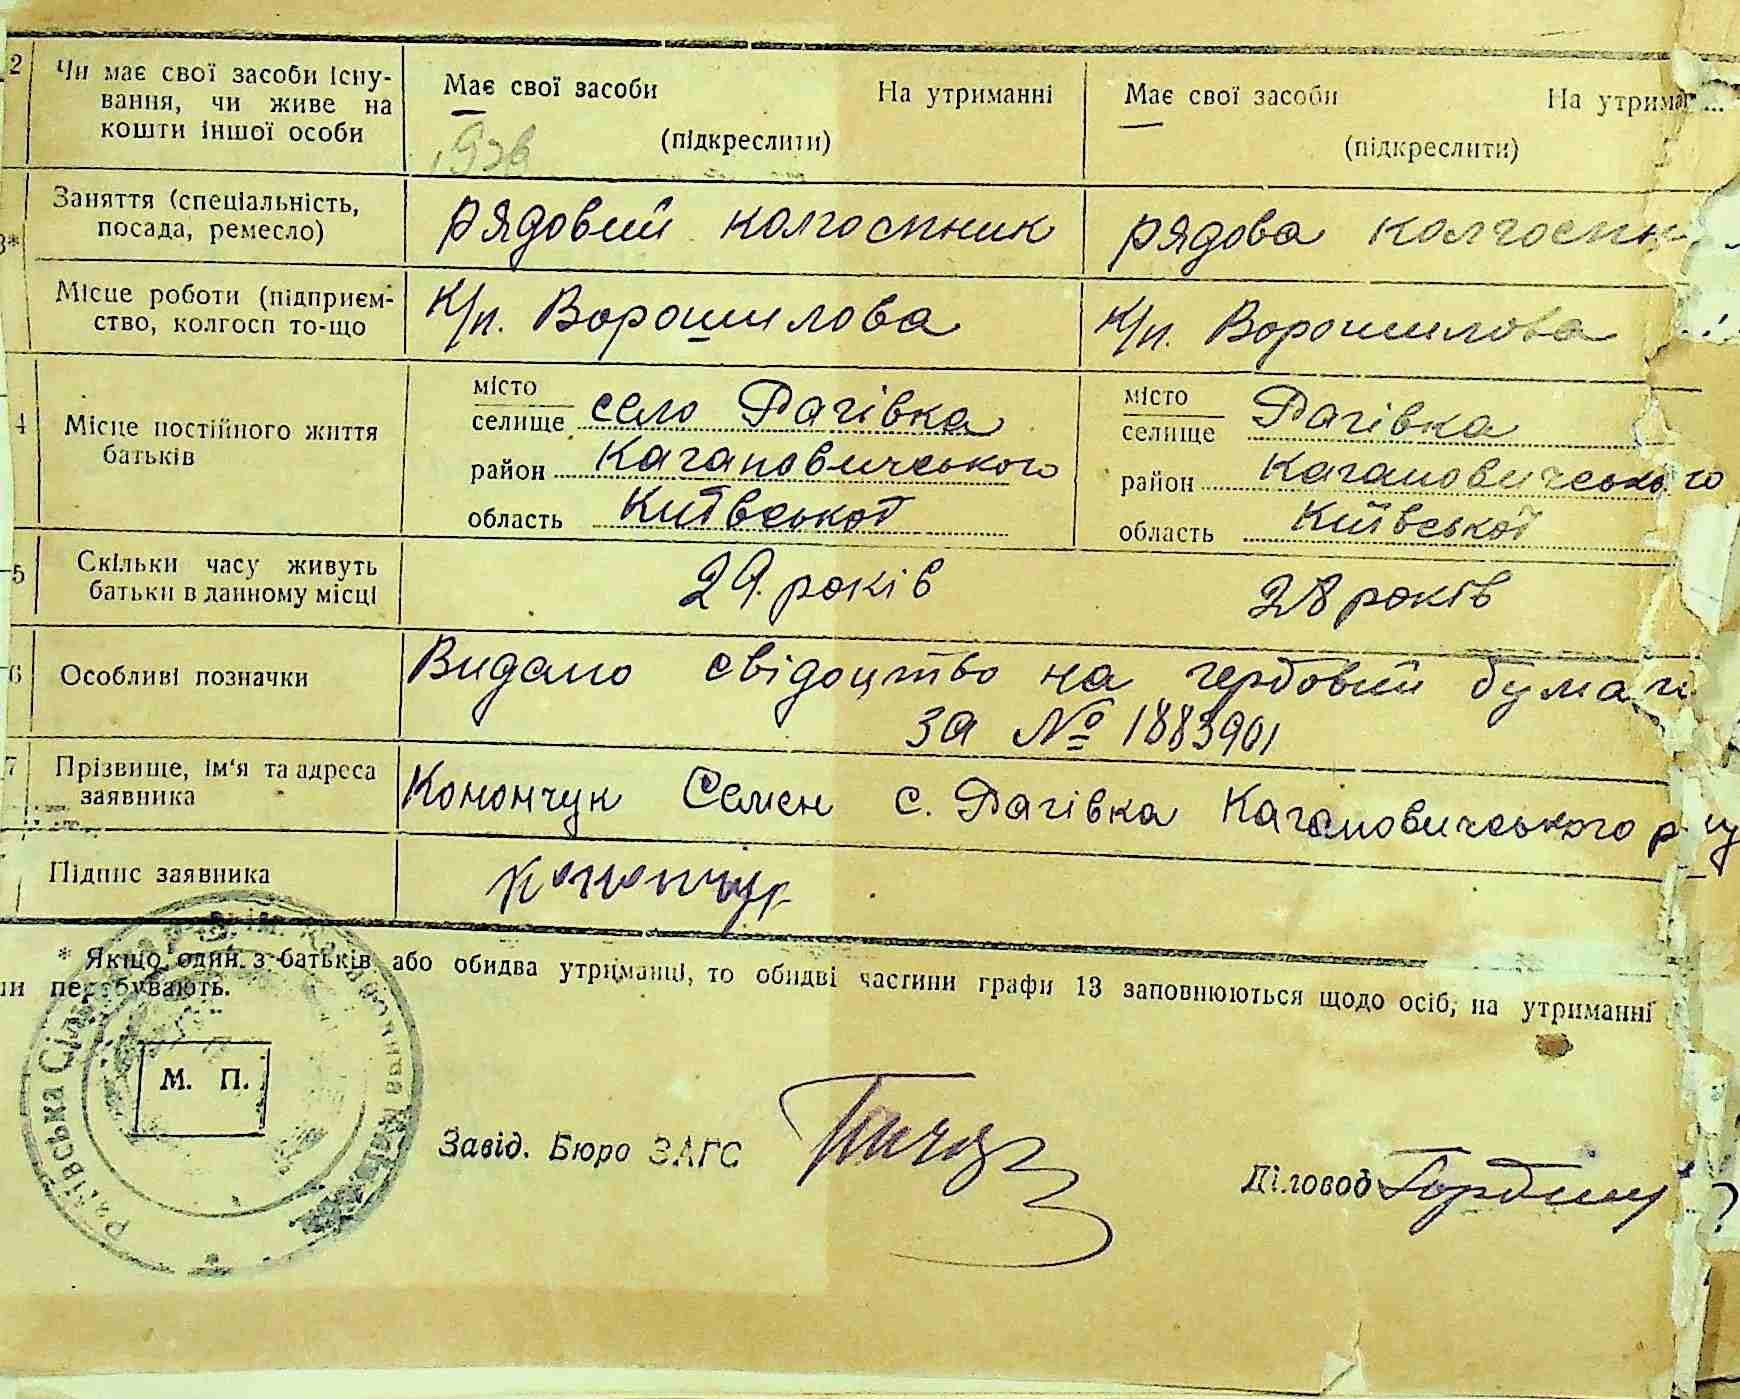 2 Чи має свої засоби існу-
вання, чи живе на
кошти іншої особи
Має свої засоби На утриманні
(підкреслити)
Має свої засоби На утриман
(підкреслити)
3* Заняття (спеціальність,
посада, ремесло)
рядовий колгоспник
рядова колгоспн
Місце роботи (підприєм-
ство, колгосп то-що
К/п. Ворошилова
К/п. Ворошилова
4 Місце постійного життя
батьків
місто
селище село Рагівка
район Кагановичського
область Київської
місто
селище Рагівка
район Кагановичського
область Київської
5 Скільки часу живуть
батьки в данному місці
29 років
28 років
6 Особливі позначки
Видано свідоцтво на гербовий бумагі
за № 1883901
7 Прізвище, ім'я та адреса
заявника
Конончук Семен с. Рагівка Кагановичського р-ну
Підпис заявника
Конончук
* Якщо один з батьків або обидва утриманці, то обидві частини графи 13 заповнюються щодо осіб, на утриманні
ни перебувають.
Рагівська
М. П.
Завід. Бюро ЗАГС
Діловод